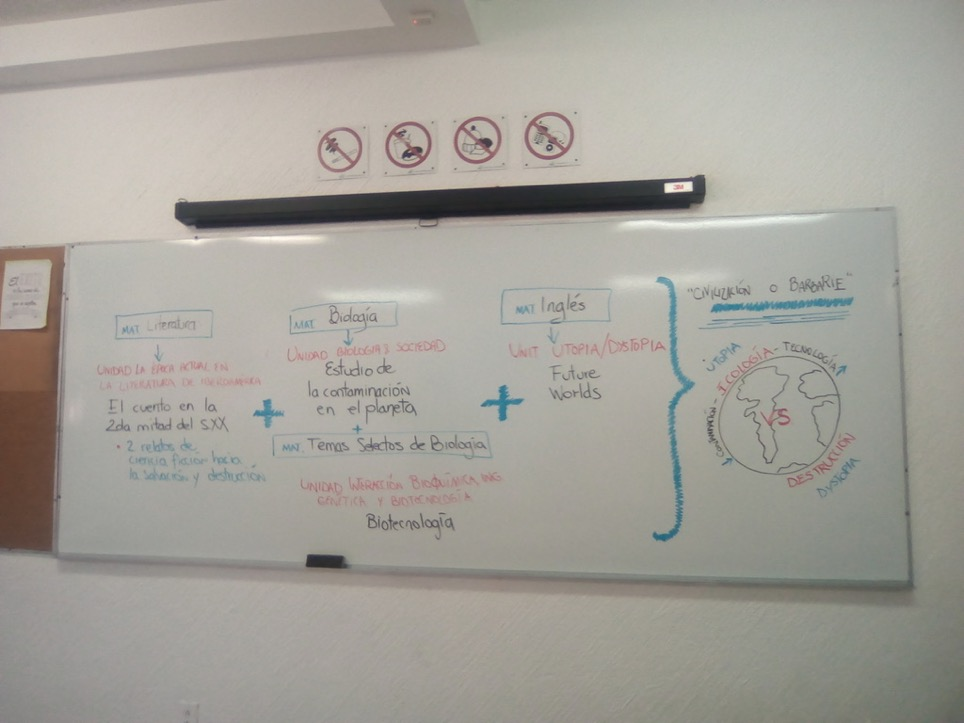 3M
MAT. Literatura
UNIDAD LA ÉPOCA ACTUAL EN
LA LITERATURA DE IBEROAMÉRICA
El cuento en la
2da mitad del S.XX
• 2 relatos de
ciencia ficción hacia
la salvación y destrucción
+
MAT. Biología
UNIDAD BIOLOGIA Y SOCIEDAD
Estudio de
la contaminación
en el planeta
+
MAT. Temas Selectos de Biología
UNIDAD BIOQUÍMICA ING.
GENÉTICA Y BIOTECNOLOGÍA
Biotecnología
+
MAT. Inglés
UNIT UTOPIA/DYSTOPIA
Future
Worlds
}
"CIVILIZACIÓN O BARBARIE"
UTOPIA
ECOLOGÍA - TECNOLOGÍA
VS
DESTRUCCIÓN
DYSTOPIA